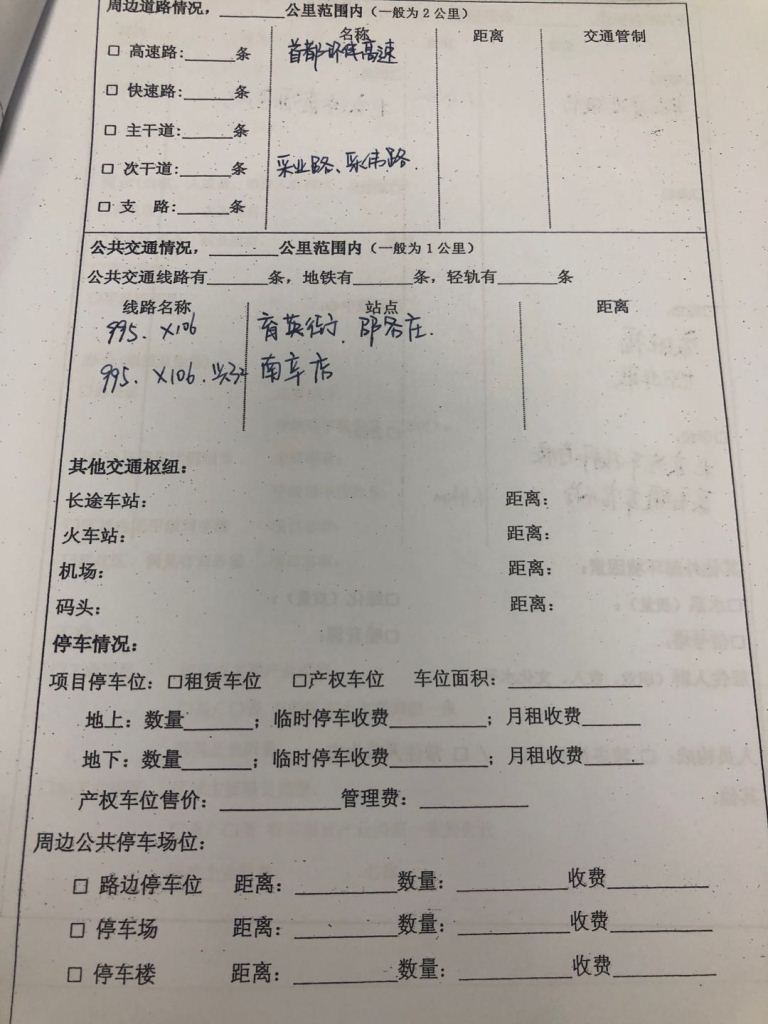 周边道路情况，______公里范围内（一般为2公里）
名称 距离 交通管制
□ 高速路：______条 首都环线高速
□ 快速路：______条
□ 主干道：______条
□ 次干道：______条 采业路、采伟路
□ 支 路：______条
公共交通情况，______公里范围内（一般为1公里）
公共交通线路有______条，地铁有______条，轻轨有______条
线路名称 站点 距离
995. X106 育英街、邵各庄.
995. X106. 兴32 南辛店
其他交通枢纽：
长途车站： 距离：
火车站： 距离：
机场： 距离：
码头： 距离：
停车情况：
项目停车位：□租赁车位 □产权车位 车位面积：______
地上：数量______；临时停车收费______；月租收费______
地下：数量______；临时停车收费______；月租收费______
产权车位售价：______管理费：______
周边公共停车场位：
□ 路边停车位 距离：______数量：______收费______
□ 停车场 距离：______数量：______收费______
□ 停车楼 距离：______数量：______收费______